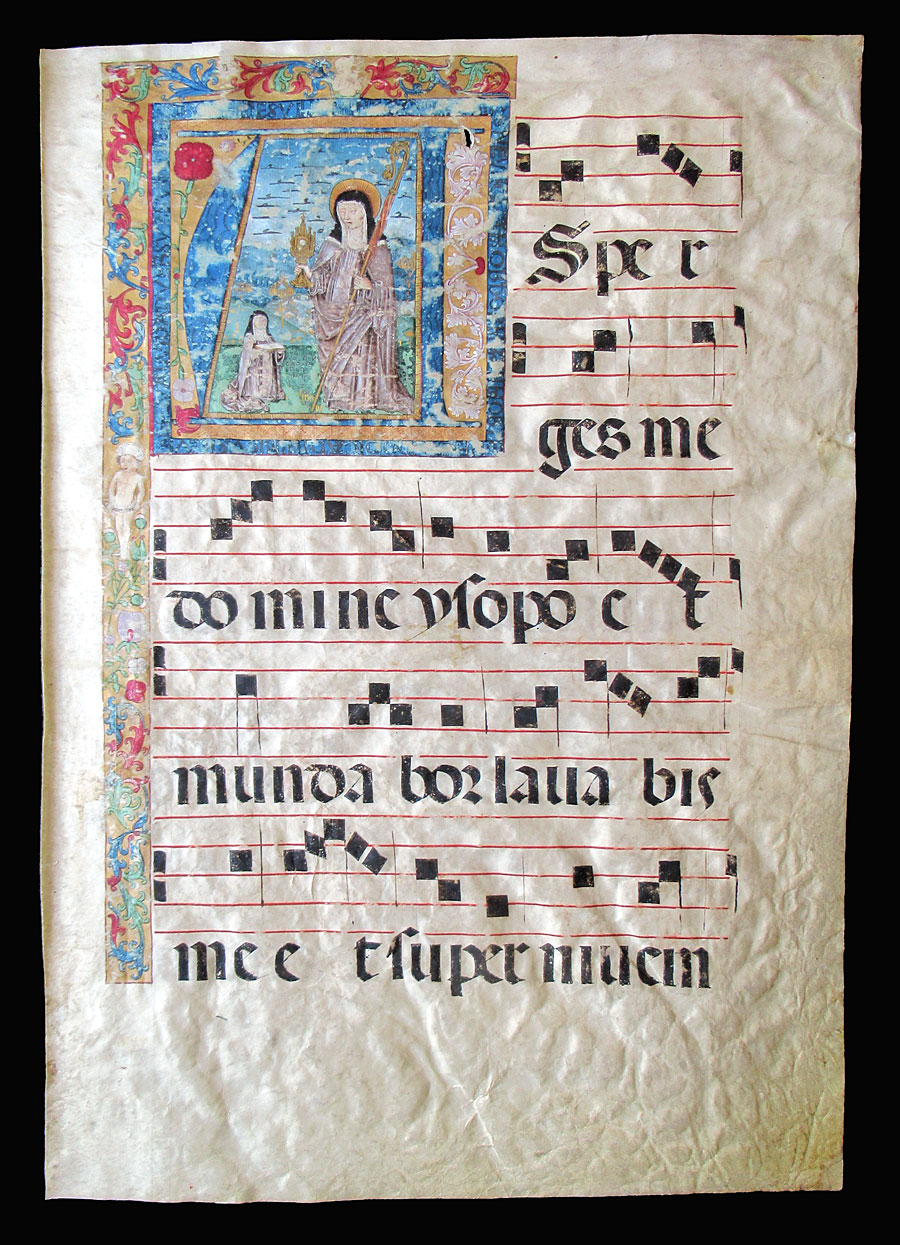 ASper
ges me
domine ysopo et
mundabor lauabis
me et super niuem